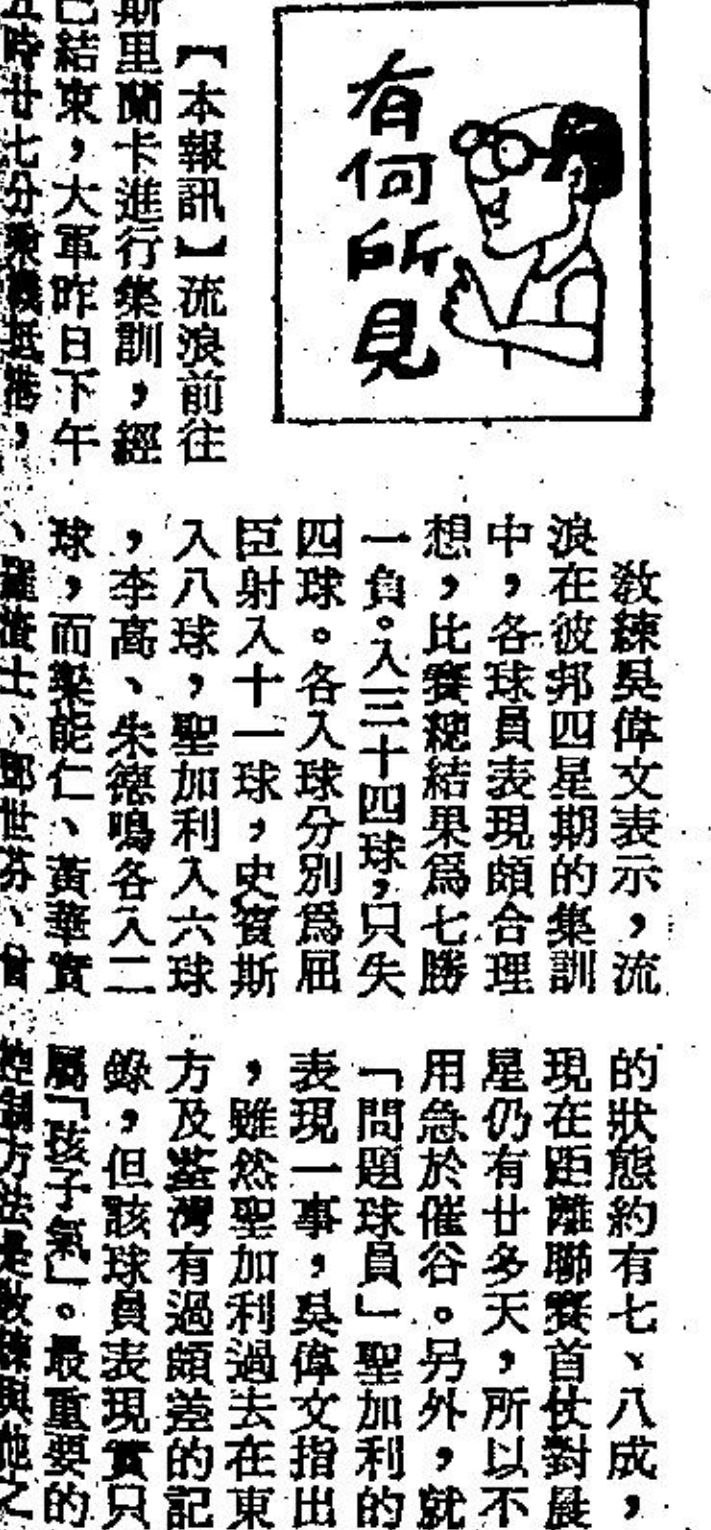 有何所見
【本報訊】流浪前往
斯里蘭卡進行集訓,經
已結束,大軍昨日下午
五時廿七分乘機抵港,
教練吳偉文表示,流
浪在彼邦四星期的集訓
中,各球員表現頗合理
想,比賽總結果爲七勝
一負。入三十四球,只失
四球。各入球分別爲屈
臣射入十一球,史賓斯
入八球,聖加利入六球
,李高、朱德鳴各入二
球,而樂能仁、黃華寶
、羅渣士、鄧世芬、曾
的狀態約有七、八成,
現在距離聯賽首仗對晨
星仍有廿多天,所以不
用急於催谷。另外,就
「問題球員」聖加利的
表現一事,吳偉文指出
,雖然聖加利過去在東
方及荃灣有過頗差的記
錄,但該球員表現實只
屬「孩子氣」。最重要的
控制方法是教練與他之